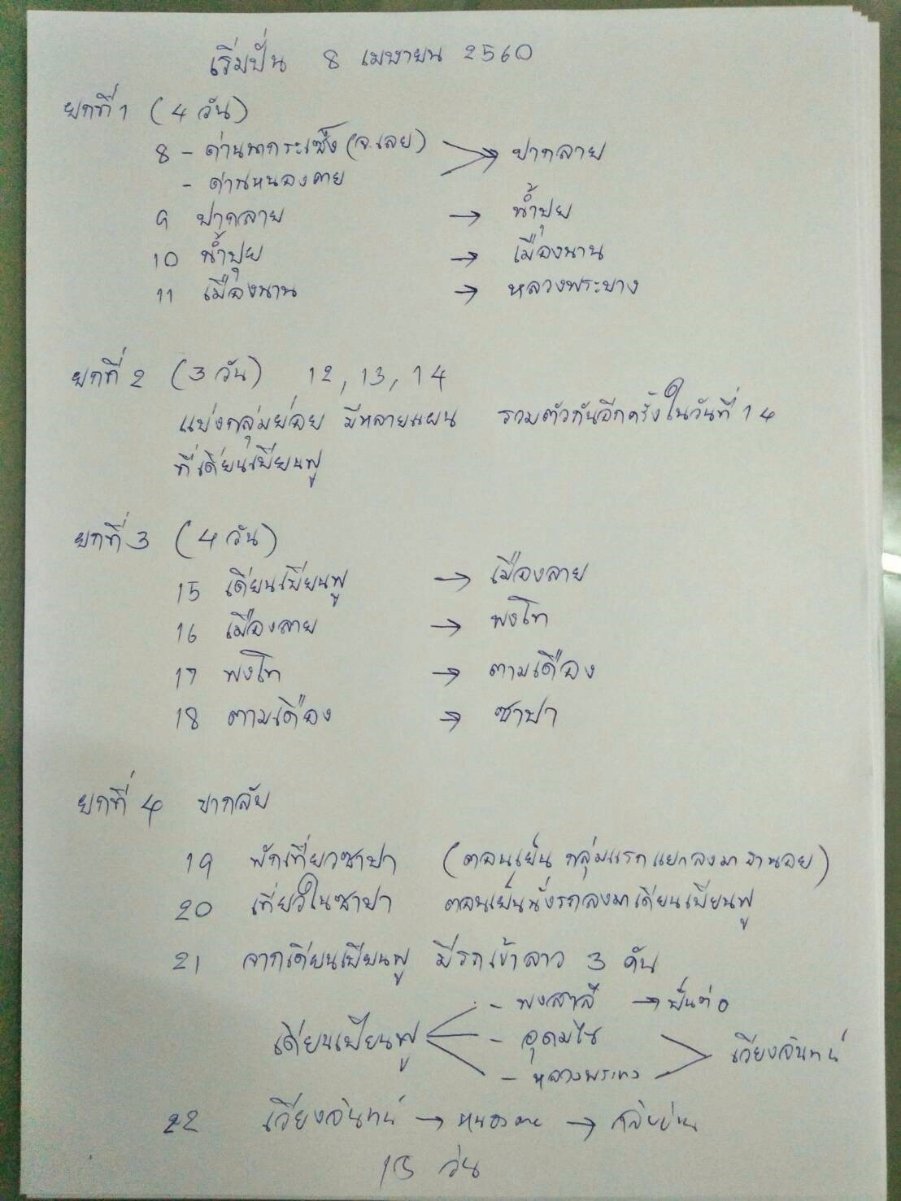 เริ่มปั่น 8 เมษายน 2560
ยกที่ 1 (4 วัน)
8 - ด่านนากระเซ็ง (จ.เลย) → ปากลาย
- ด่านหนองคาย
9 ปากลาย → น้ำปุย
10 น้ำปุย → เมืองนาน
11 เมืองนาน → หลวงพระบาง
ยกที่ 2 (3 วัน) 12, 13, 14
แบ่งกลุ่มย่อย มีหลายแผน รวมตัวกันอีกครั้งในวันที่ 14
ที่เดียนเบียนฟู
ยกที่ 3 (4 วัน)
15 เดียนเบียนฟู → เมืองลาย
16 เมืองลาย → พงโท
17 พงโท → ตามเดือง
18 ตามเดือง → ซาปา
ยกที่ 4 ขากลับ
19 พักเที่ยวซาปา (ตอนเย็น กลุ่มแรกแยกลงมาฮานอย)
20 เที่ยวในซาปา ตอนเย็นนั่งรถลงมาเดียนเบียนฟู
21 จากเดียนเบียนฟู มีรถเข้าลาว 3 คัน
- พงสาลี → ปั่นต่อ
เดียนเบียนฟู - อุดมไซ → เวียงจันทน์
- หลวงพระบาง
22 เวียงจันทน์ → หนองคาย → กลับบ้าน
15 วัน